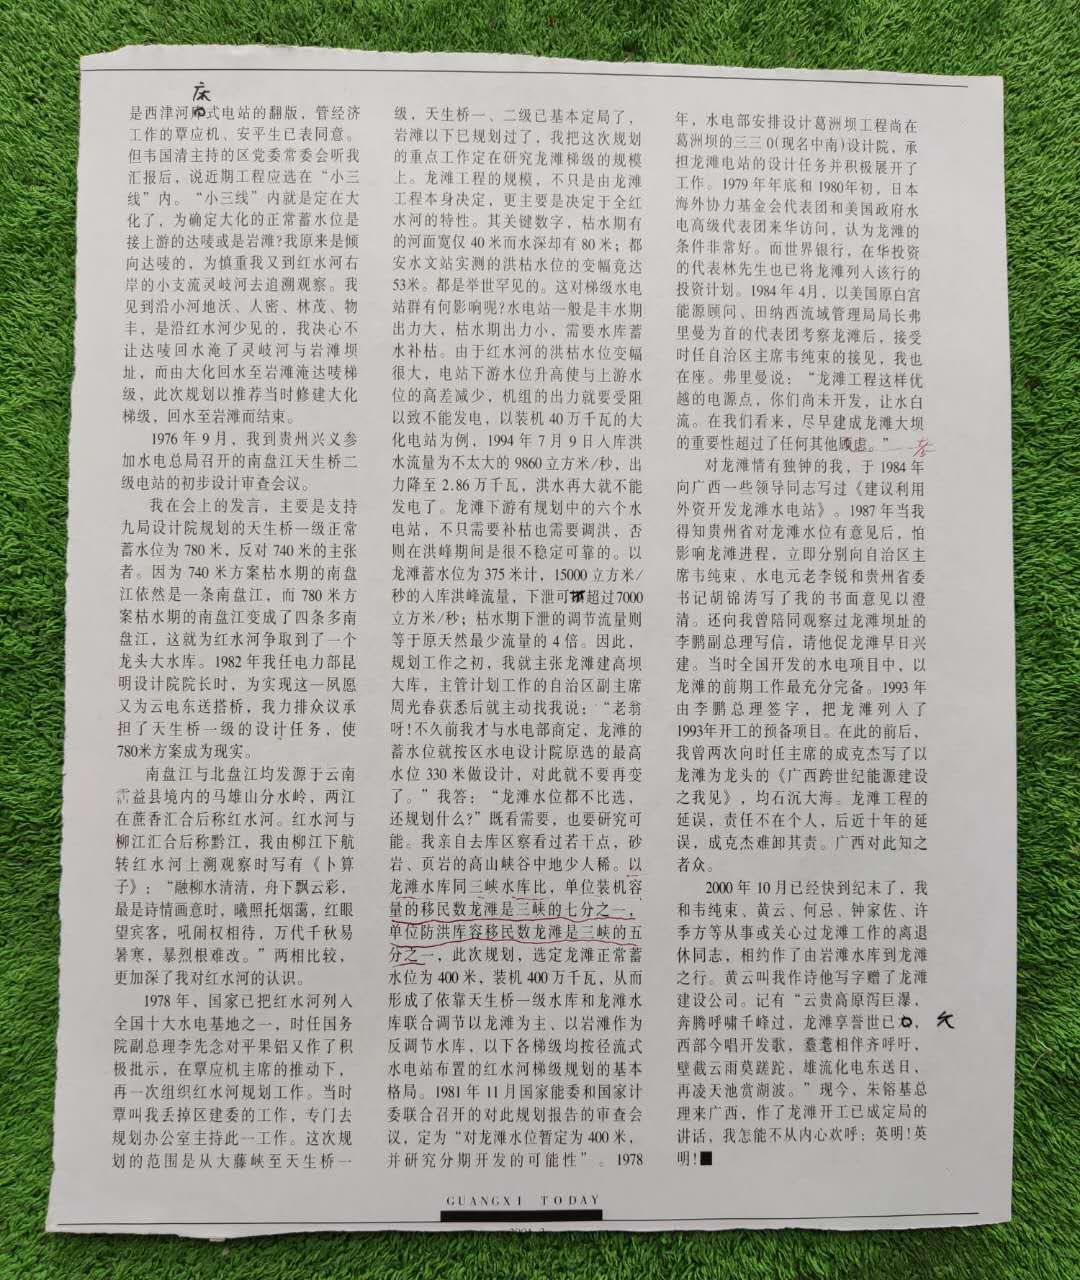 床
是西津河床式电站的翻版，管经济
工作的覃应机、安平生已表同意。
但韦国清主持的区党委常委会听我
汇报后，说近期工程应选在“小三
线”内。“小三线”内就是定在大
化了，为确定大化的正常蓄水位是
接上游的达唛或是岩滩?我原来是倾
向达唛的，为慎重我又到红水河右
岸的小支流灵岐河去追溯观察。我
见到沿小河地沃、人密、林茂、物
丰，是沿红水河少见的，我决心不
让达唛回水淹了灵岐河与岩滩坝
址，而由大化回水至岩滩淹达唛梯
级，此次规划以推荐当时修建大化
梯级，回水至岩滩而结束。
1976 年 9 月，我到贵州兴义参
加水电总局召开的南盘江天生桥二
级电站的初步设计审查会议。
我在会上的发言，主要是支持
九局设计院规划的天生桥一级正常
蓄水位为 780 米，反对 740 米的主张
者。因为 740 米方案枯水期的南盘
江依然是一条南盘江，而 780 米方
案枯水期的南盘江变成了四条多南
盘江，这就为红水河争取到了一个
龙头大水库。1982 年我任电力部昆
明设计院院长时，为实现这一夙愿
又为云电东送搭桥，我力排众议承
担了天生桥一级的设计任务，使
780米方案成为现实。
南盘江与北盘江均发源于云南
霑益县境内的马雄山分水岭，两江
在蔗香汇合后称红水河。红水河与
柳江汇合后称黔江，我由柳江下航
转红水河上溯观察时写有《卜算
子》：“融柳水清清，舟下飘云彩，
最是诗情画意时，曦照托烟霭，红眼
望宾客，吼闹权相待，万代千秋易
暑寒，暴烈根难改。”两相比较，
更加深了我对红水河的认识。
1978 年，国家已把红水河列入
全国十大水电基地之一，时任国务
院副总理李先念对平果铝又作了积
极批示，在覃应机主席的推动下，
再一次组织红水河规划工作。当时
覃叫我丢掉区建委的工作，专门去
规划办公室主持此一工作。这次规
划的范围是从大藤峡至天生桥一
级，天生桥一、二级已基本定局了，
岩滩以下已规划过了，我把这次规划
的重点工作定在研究龙滩梯级的规模
上。龙滩工程的规模，不只是由龙滩
工程本身决定，更主要是决定于全红
水河的特性。其关键数字，枯水期有
的河面宽仅 40 米而水深却有 80 米；都
安水文站实测的洪枯水位的变幅竟达
53米。都是举世罕见的。这对梯级水电
站群有何影响呢?水电站一般是丰水期
出力大，枯水期出力小，需要水库蓄
水补枯。由于红水河的洪枯水位变幅
很大，电站下游水位升高使与上游水
位的高差减少，机组的出力就要受阻
以致不能发电，以装机 40 万千瓦的大
化电站为例，1994 年 7 月 9 日入库洪
水流量为不太大的 9860 立方米/秒，出
力降至 2.86 万千瓦，洪水再大就不能
发电了。龙滩下游有规划中的六个水
电站，不只需要补枯也需要调洪，否
则在洪峰期间是很不稳定可靠的。以
龙滩蓄水位为 375 米计，15000 立方米/
秒的入库洪峰流量，下泄可不超过7000
立方米/秒；枯水期下泄的调节流量则
等于原天然最少流量的 4 倍。因此，
规划工作之初，我就主张龙滩建高坝
大库，主管计划工作的自治区副主席
周光春获悉后就主动找我说：“老翁
呀!不久前我才与水电部商定，龙滩的
蓄水位就按区水电设计院原选的最高
水位 330 米做设计，对此就不要再变
了。”我答：“龙滩水位都不比选，
还规划什么?”既看需要，也要研究可
能。我亲自去库区察看过若干点，砂
岩、页岩的高山峡谷中地少人稀。以
龙滩水库同三峡水库比，单位装机容
量的移民数龙滩是三峡的七分之一，
单位防洪库容移民数龙滩是三峡的五
分之一，此次规划，选定龙滩正常蓄
水位为 400 米，装机 400 万千瓦，从而
形成了依靠天生桥一级水库和龙滩水
库联合调节以龙滩为主、以岩滩作为
反调节水库，以下各梯级均按径流式
水电站布置的红水河梯级规划的基本
格局。1981 年 11 月国家能委和国家计
委联合召开的对此规划报告的审查会
议，定为“对龙滩水位暂定为 400 米，
并研究分期开发的可能性”。1978
年，水电部安排设计葛洲坝工程尚在
葛洲坝的三三 0(现名中南)设计院，承
担龙滩电站的设计任务并积极展开了
工作。1979 年年底和 1980年初，日本
海外协力基金会代表团和美国政府水
电高级代表团来华访问，认为龙滩的
条件非常好。而世界银行，在华投资
的代表林先生也已将龙滩列入该行的
投资计划。1984 年 4月，以美国原白宫
能源顾问、田纳西流域管理局局长弗
里曼为首的代表团考察龙滩后，接受
时任自治区主席韦纯束的接见，我也
在座。弗里曼说：“龙滩工程这样优
越的电源点，你们尚未开发，让水白
流。在我们看来，尽早建成龙滩大坝
的重要性超过了任何其他顾虑。”
对龙滩情有独钟的我，于 1984 年
向广西一些领导同志写过《建议利用
外资开发龙滩水电站》。1987 年当我
得知贵州省对龙滩水位有意见后，怕
影响龙滩进程，立即分别向自治区主
席韦纯束、水电元老李锐和贵州省委
书记胡锦涛写了我的书面意见以澄
清。还向我曾陪同观察过龙滩坝址的
李鹏副总理写信，请他促龙滩早日兴
建。当时全国开发的水电项目中，以
龙滩的前期工作最充分完备。1993 年
由李鹏总理签字，把龙滩列入了
1993年开工的预备项目。在此的前后，
我曾两次向时任主席的成克杰写了以
龙滩为龙头的《广西跨世纪能源建设
之我见》，均石沉大海。龙滩工程的
延误，责任不在个人，后近十年的延
误，成克杰难卸其责。广西对此知之
者众。
2000 年 10 月已经快到纪末了，我
和韦纯束、黄云、何忌、钟家佐、许
季方等从事或关心过龙滩工作的离退
休同志，相约作了由岩滩水库到龙滩
之行。黄云叫我作诗他写字赠了龙滩
建设公司。记有“云贵高原泻巨瀑，
奔腾呼啸千峰过，龙滩享誉世已久，
久
西部今唱开发歌，耋耄相伴齐呼吁，
壁截云雨莫蹉跎，雄流化电东送日，
再凌天池赏湖波。”现今，朱镕基总
理来广西，作了龙滩开工已成定局的
讲话，我怎能不从内心欢呼：英明!英
明!■
GUANGXI TODAY